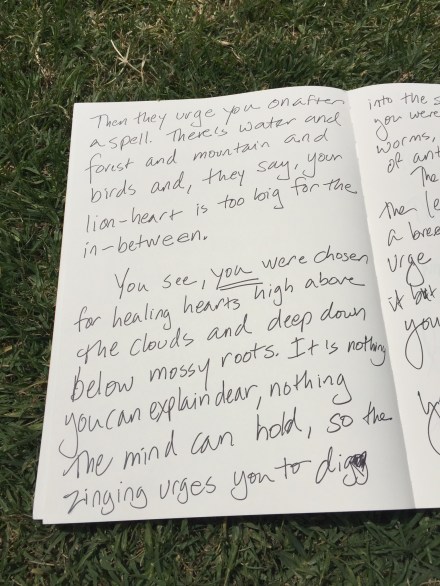 Then they urge you on after
a spell. There's water and
forest and mountain and
birds and, they say, your
lion-heart is too big for the
in-between.
You see, you were chosen
for healing hearts high above
the clouds and deep down
below mossy roots. It is nothing
you can explain dear, nothing
the mind can hold, so the
zinging urges you to dig
into the s
you were
worms,
of ant
The
then le
a bree
urge
it
you
y